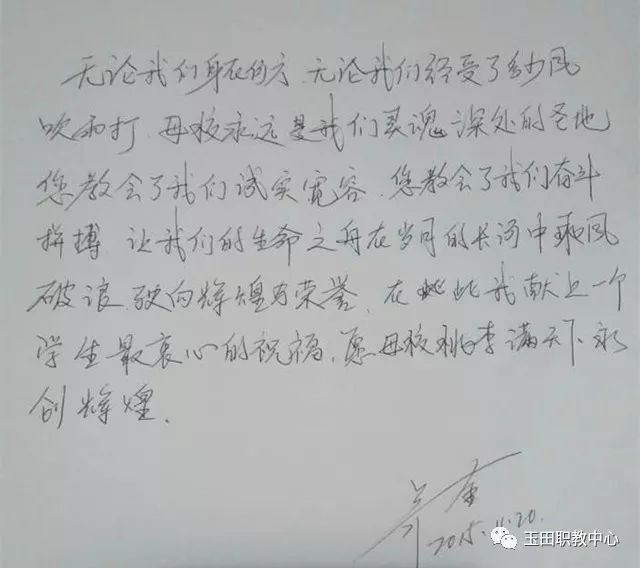 无论我们身在何方、无论我们经受了多少风
吹雨打、母校永远是我们灵魂深处的圣地
您教会了我们诚实宽容、您教会了我们奋斗
拼搏、让我们的生命之舟在岁月的长河中乘风
破浪、驶向辉煌与荣誉、在此我献上一个
学生最衷心的祝福、愿母校桃李满天下、永
创辉煌、
2015.11.20.
玉田职教中心